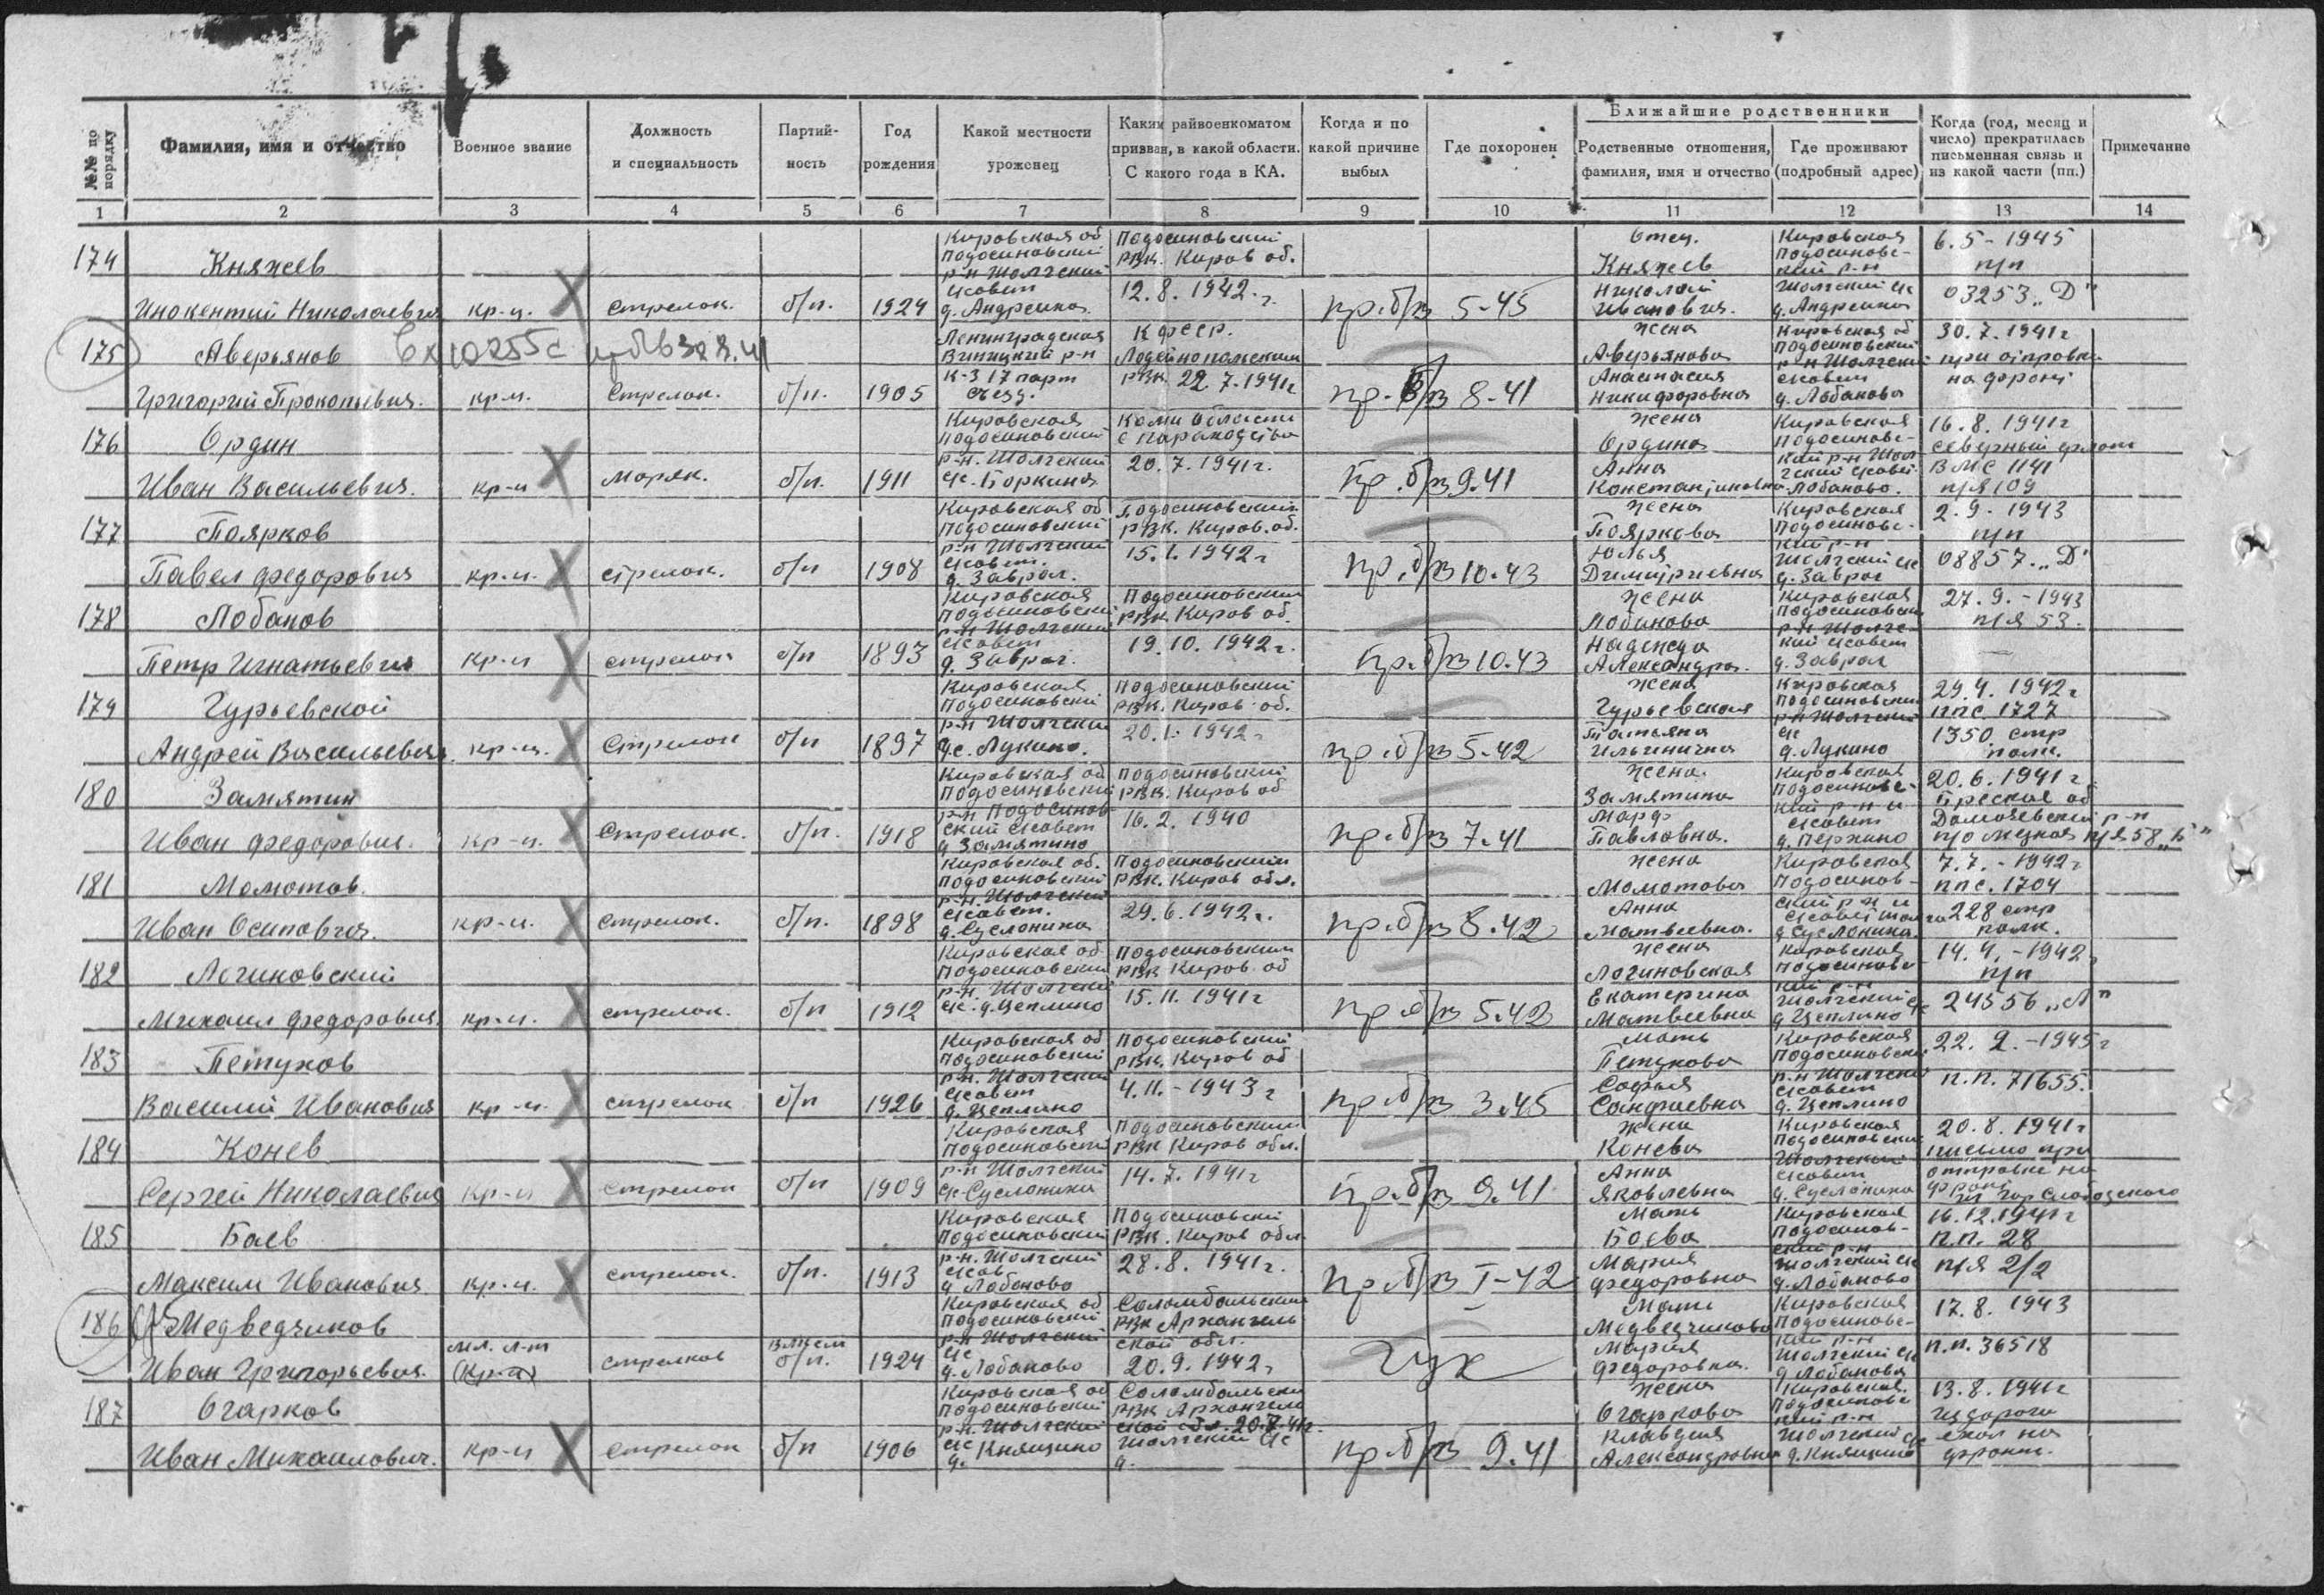 №№ по порядку
Фамилия, имя и отчество
Военное звание
Должность и специальность
Партийность
Год рождения
Какой местности уроженец
Каким райвоенкоматом призван, в какой области. С какого года в КА.
Когда и по какой причине выбыл
Где похоронен
Ближайшие родственники
Родственные отношения, фамилия, имя и отчество
Где проживают (подробный адрес)
Когда (год, месяц и число) прекратилась письменная связь и из какой части (пп.)
Примечание
1 2 3 4 5 6 7 8 9 10 11 12 13 14
174 Княжев
Инокентий Николаевич кр-ц. стрелок. б/п. 1924
Кировская об Подосиновский р-н Шолгский с/совет д. Андреино
Подосиновский РВК. Киров об. 12.8.1942 г.
пр. б/в 5-45
Отец. Княжев Николай Иванович.
Кировская Подосиновский р-н Шолгский с/с д. Андреино
6.5-1945 п/п 03253 „Д"
175 Аверьянов
Григорий Прокопьевич. кр-ц. Стрелок. б/п. 1905
Ленинградская Винницкий р-н к-з 17 парт съезд.
КФССР. РВК 22.7.1941г
пр. б/в 8-41
Жена Аверьянова Анастасия Никифоровна
Кировская об Подосиновский р-н Шолгский с/совет д. Лобаново
30.7.1941г при отправки на фронт
176 Ордин
Иван Васильевич. кр-ц Моряк. б/п. 1911
Кировская Подосиновский р-н. Шолгский с/с. Боркина
Коми области с пароходства 20.7.1941г.
Пр. б/в 9.41
Жена Ордина Анна Константиновна
Кировская Подосиновский р-н Шолгский с/совет Лобаново.
16.8.1941г Северный флот ВМС 1141 п/я 109
177 Поярков
Павел Федорович кр-ц. стрелок. б/п 1908
Кировская об Подосиновский р-н Шолгский с/совет. д. Заврая.
Подосиновский РВК. Киров. об. 15.1.1942г
пр. б/в 10.43
Жена Пояркова Юлья Димитриевна
Кировская Подосиновский р-н Шолгский с/с д. Заврая
2.9.1943 п/п 08857 „Д"
178 Лобанов
Петр Игнатьевич кр-ц стрелок б/п 1893
Кировская Подосиновский р-н Шолгский с/совет д. Заврая.
Подосиновский РВК Киров об. 19.10.1942г.
пр. б/в 10.43
Жена Лобанова Надежда Александров.
Кировская Подосиновский р-н Шолгский с/совет д. Заврая
27.9.-1943 п/я 53.
179 Гурьевской
Андрей Васильевич. кр-ц. Стрелок б/п 1897
Кировская Подосиновский р-н Шолгский с/с. Лукино.
Подосиновский РВК. Киров об. 20.1.1942г
пр. б/в 5-42
Жена Гурьевская Татьяна Ильинична
Кировская Подосиновский р-н Шолгский с/с д. Лукино
29.4.1942г ппс. 1727 1350 стр полк.
180 Замятин
Иван Федорович. кр-ц. Стрелок. б/п. 1918
Кировская об Подосиновский р-н Подосиновский с/совет д. Замятино
Подосиновский РВК. Киров об 16.2.1940
пр. б/в 7.41
Жена Замятина Павловна.
Кировская с/совет
20.6.1941г.
181 Момотов.
Иван Осипович. кр-ц. Стрелок. б/п. 1898
Кировская об. Подосиновский р-н. Шолгский с/совет. д. Суслониха
Подосиновский РВК. Киров обл. 29.6.1942г.
пр. б/в 8.42
Жена Момотова Анна Матвеевна.
Кировская д. Суслониха.
7.7.-1942г ппс. 1704 228 стр полк.
182 Логиновский
Михаил Федорович. кр-ц. стрелок. б/п 1912
Кировская об Подосиновский р-н. Шолгский с/с. д. Цеплино
Подосиновский РВК Киров об 15.11.1941г
пр. б/в 5.42
Жена Логиновская Екатерина Матвеевна
Кировская Шолгский с/с д. Цеплино
14.4.-1942г п/п 24556 „Л"
183 Петухов
Василий Иванович кр-ц. стрелок б/п 1926
Кировская об Подосиновский р-н. Шолгский с/совет д. Цеплино
Подосиновский РВК. Киров об 4.11.-1943г
пр. б/в 3.45
Мать Петухова Софья
Кировская Подосиновский р-н Шолгский с/совет д. Цеплино
22.2.-1945г п.п. 71655.
184 Конев
Сергей Николаевич кр-ц стрелок б/п 1909
Кировская Подосиновский р-н Шолгский с/с Суслониха
Подосиновский РВК Киров обл. 14.7.1941г
пр. б/в 9.41
Жена Конева Анна Яковлевна
Кировская Подосиновский Шолгский с/совет д. Суслониха
20.8.1941г письмо при отправке на фронт
185 Баев
Максим Иванович кр-ц. стрелок. б/п. 1913
Кировская Подосиновский р-н. Шолгский с/сов. д. Лобаново
Подосиновский РВК. Киров обл 28.8.1941г.
пр. б/в I-42
Мать Баева Мария Федоровна
Кировская Подосиновский р-н Шолгский с/с д. Лобаново
16.12.1941г п.п. 28 п/я 2/2
186 Медведчиков
Иван Григорьевич. мл. л-т (кр-ц) стрелков б/п. 1924
Кировская об Подосиновский р-н Шолгский с/с д. Лобаново
Соломбальский РВК Архангельской обл. 20.9.1942г
ГУК
Мать Медведчикова Мария Федоровна.
Кировская Шолгский с/с д. Лобаново
17.8.1943 п.п. 36518
187 Огарков
Иван Михаилович. кр-ц стрелок б/п 1906
Кировская об Подосиновский р-н. Шолгский с/с д. Княщино
Соломбальский РВК Архангельской обл. 20.7.41г. Шолгский с/с д.
пр. б/в 9.41
Жена Огаркова Клавдия Александровна
Кировская. Шолгский с/с д. Княщино
13.8.1941г из дороги ехал на фронт.